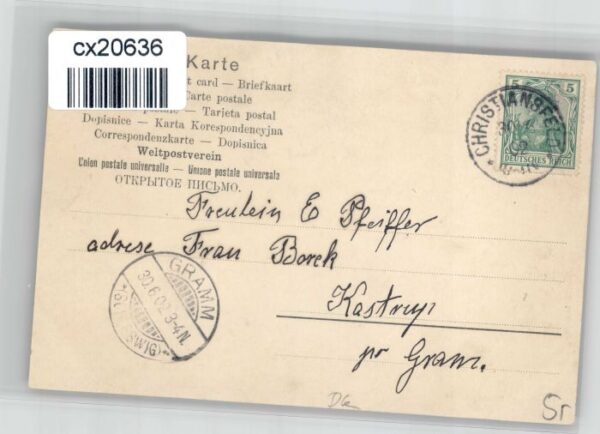 cx20636
Karte
st card — Briefkaart
Carte postale
— Tarjeta postal
Dopisnice — Karta Korespondencyjna
Correspondenzkarte — Dopisnica
Weltpostverein
L'eion postale universelle — Unione postale universale
ОТКРЫТОЕ ПИСЬМО.
5 5
DEUTSCHES REICH
CHRISTIANSFELD
Freulein E Pfeiffer
adrese Frau Borck
Kastrup
pr Gram.
GRAMM
30.6.02.3-4N.
Sr